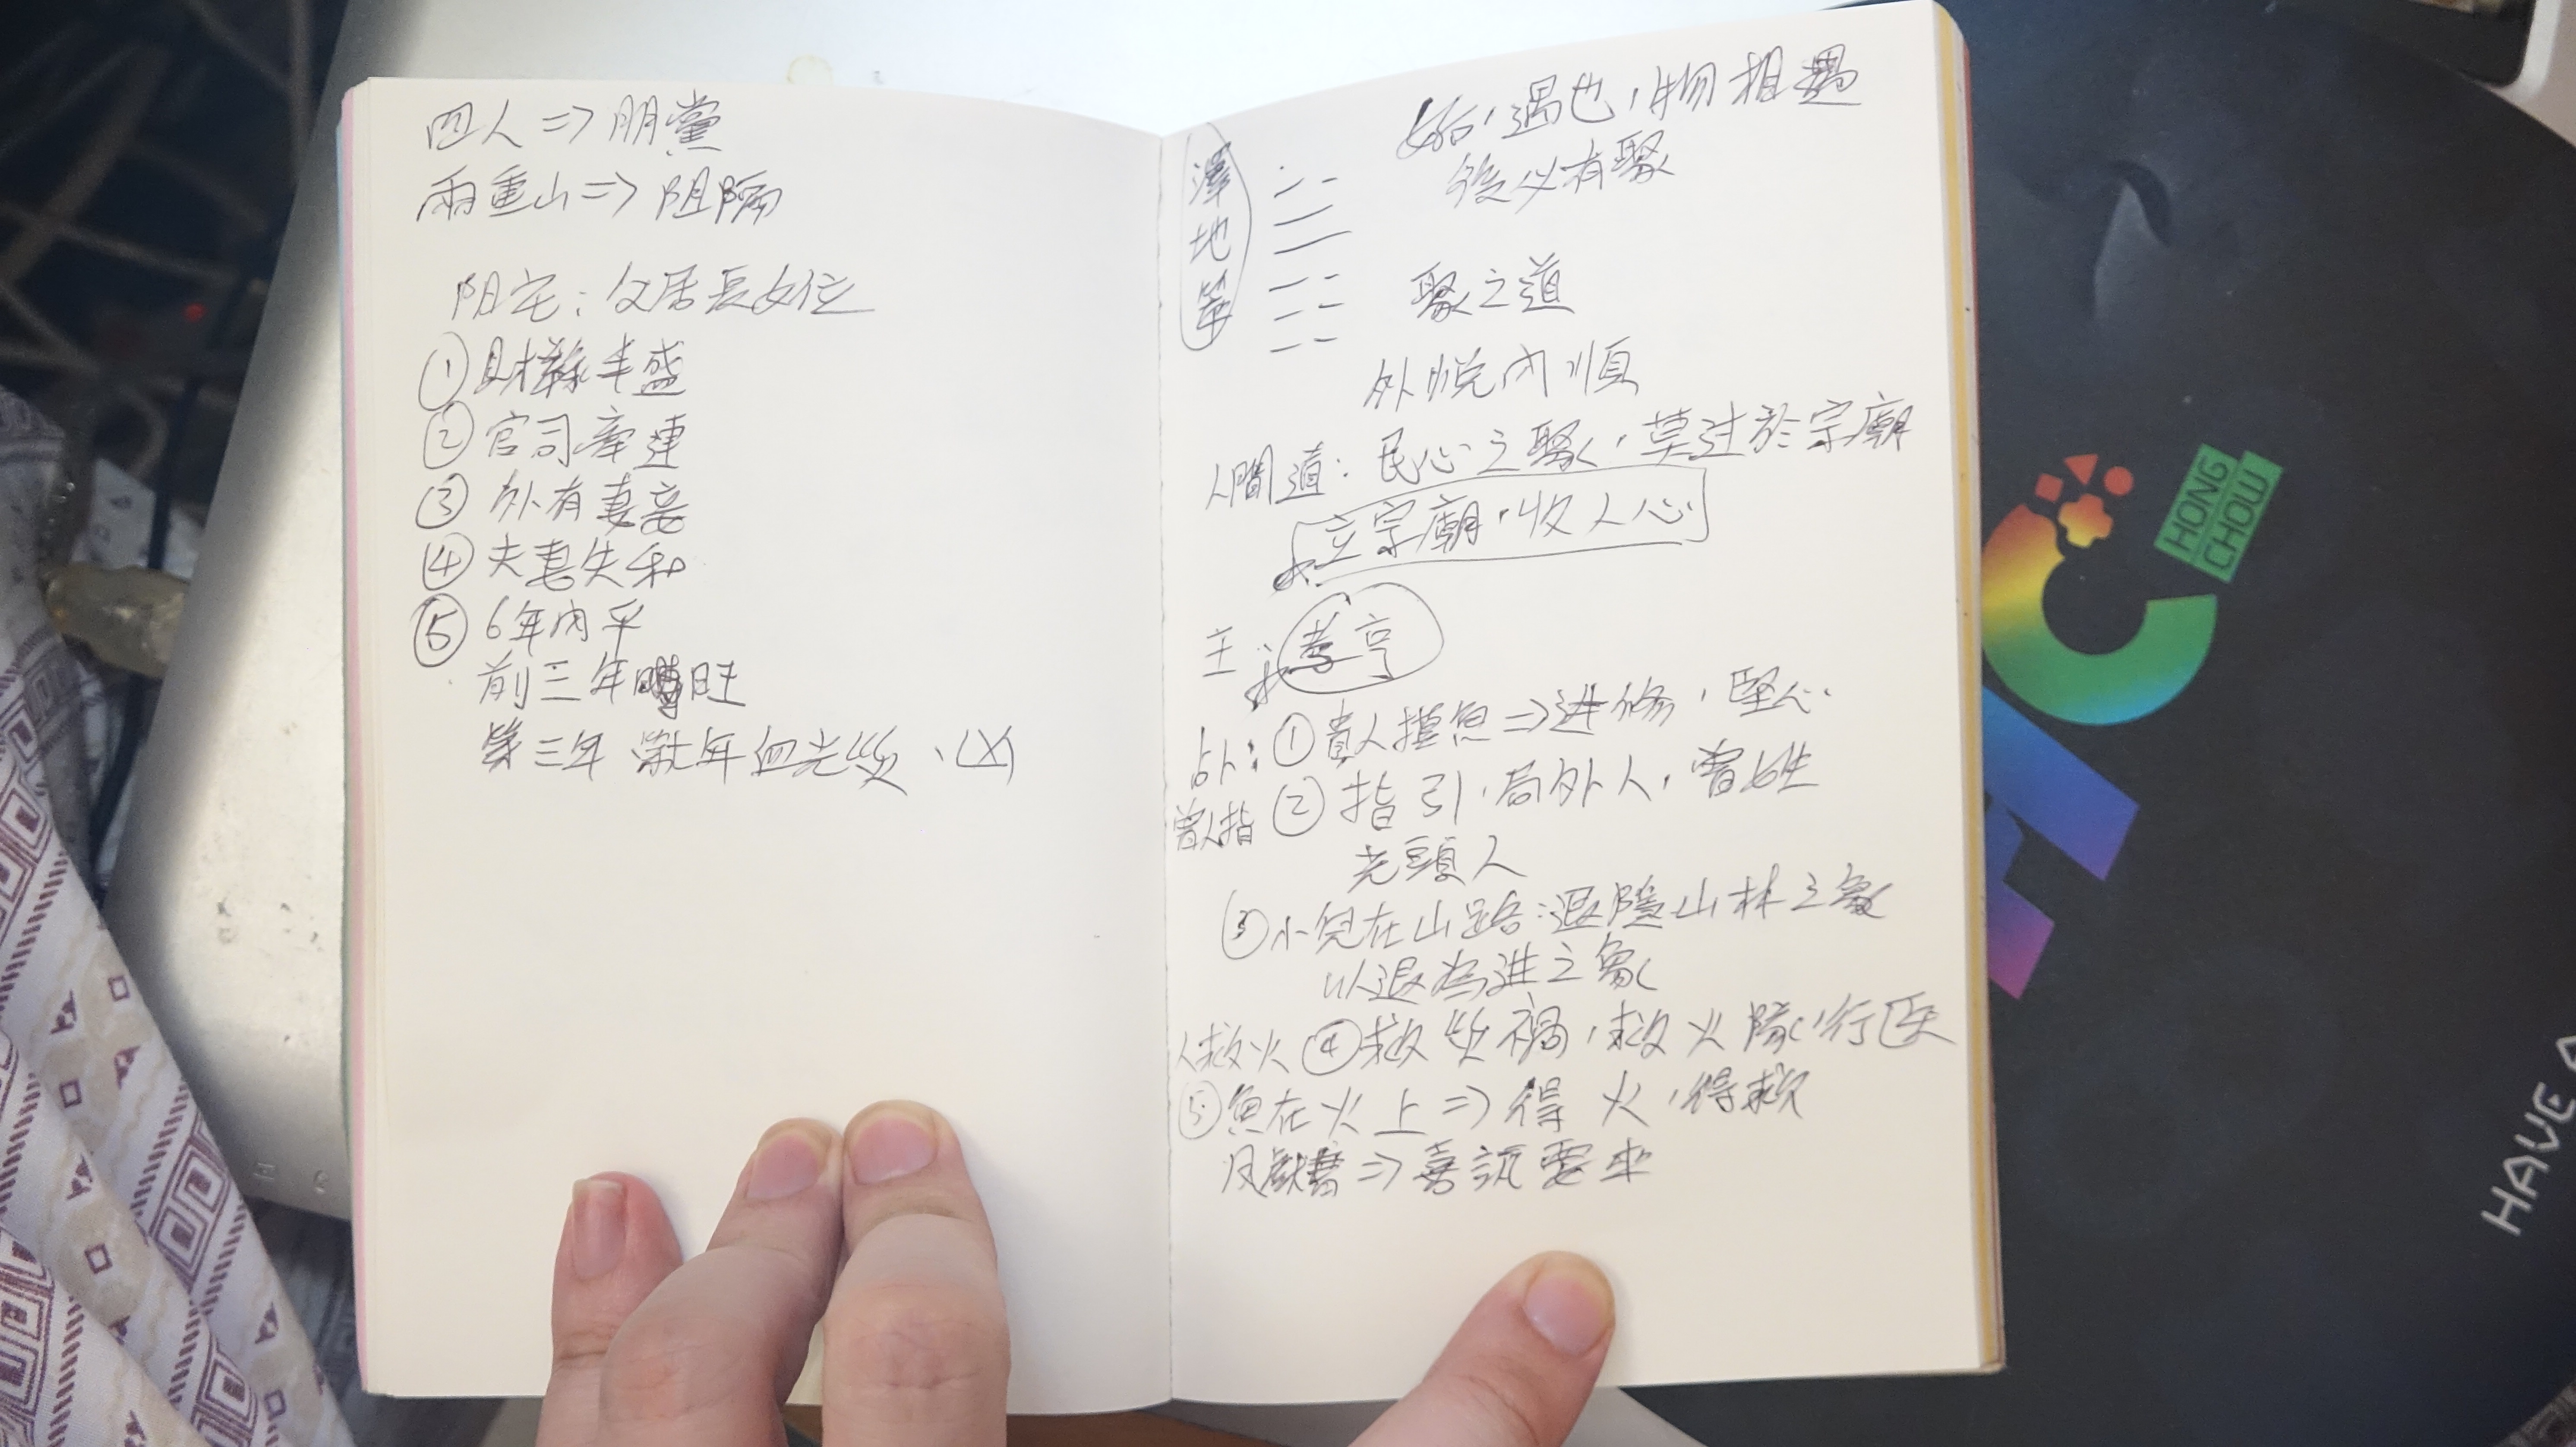 四人 => 朋黨
兩重山 => 阻隔
陽宅：父居長女位
① 財祿丰盛
② 官司牽連
③ 外有妻妾
④ 夫妻失和
⑤ 6年內平
前三年 旺
第三年 年血光災、凶
澤地萃
姤，遇也，物相遇
後必有聚
聚之道
外悦內順
人間道：民心之聚，莫过於宗廟
立宗廟，收人心
主 孝亨
占卜：① 貴人摸魚 => 进修，堅心
曾人指 ② 指引，局外人，曾姓
老頭人
③ 小兒在山路：退隱山林之象
以退為進之象
人救火 ④ 救災禍，救火隊，行医
⑤ 魚在火上 => 得火，得救
凤獻書 => 喜訊要來
HONG
CHOW
HC
HAVE A